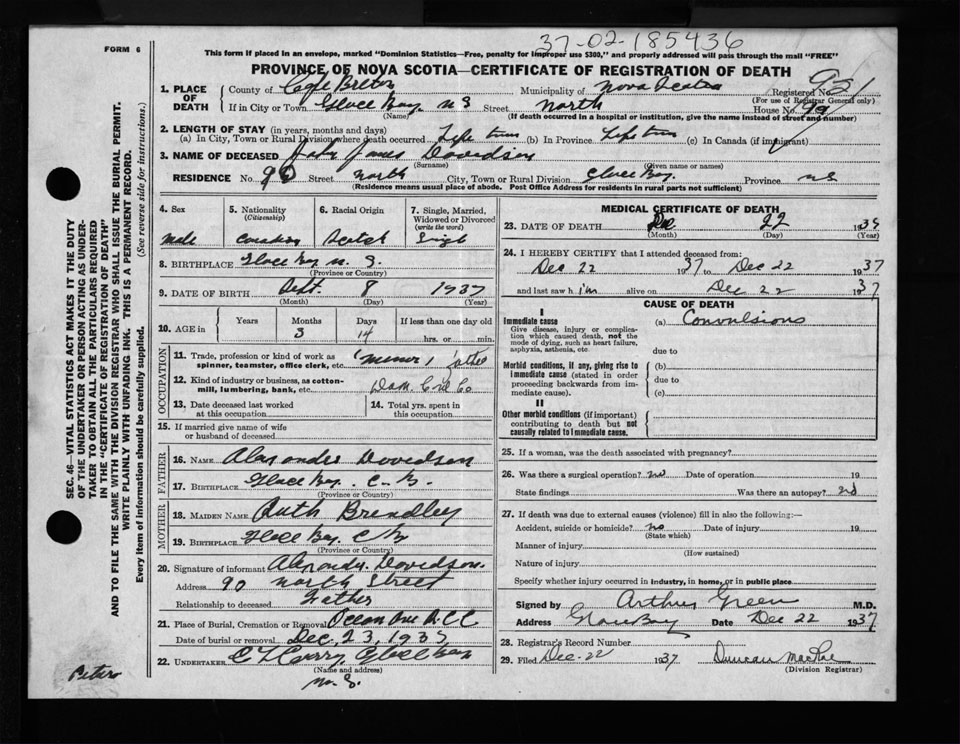 FORM 6
37-02-185436
This form if placed in an envelope, marked "Dominion Statistics—Free, penalty for improper use $300," and properly addressed will pass through the mail "FREE"
PROVINCE OF NOVA SCOTIA—CERTIFICATE OF REGISTRATION OF DEATH
1. PLACE OF DEATH
County of Cape Breton Municipality of Nova Scotia Registered No. 951
(For use of Registrar General only)
If in City or Town Glace Bay N S Street North House No. 90
(Name) (If death occurred in a hospital or institution, give the name instead of street and number)
2. LENGTH OF STAY (in years, months and days)
(a) In City, Town or Rural Division where death occurred Life time (b) In Province Life time (c) In Canada (if immigrant)
3. NAME OF DECEASED John James Davidson
(Surname) (Given name or names)
RESIDENCE No. 90 Street North City, Town or Rural Division Glace Bay. Province NS
(Residence means usual place of abode. Post Office Address for residents in rural parts not sufficient)
4. Sex Male
5. Nationality (Citizenship) Canadian
6. Racial Origin Scotch
7. Single, Married, Widowed or Divorced (write the word) Single
8. BIRTHPLACE Glace Bay N. S.
(Province or Country)
9. DATE OF BIRTH Sept. 8 1937
(Month) (Day) (Year)
10. AGE in Years Months 3 Days 14 If less than one day old hrs. or min.
OCCUPATION
11. Trade, profession or kind of work as spinner, teamster, office clerk, etc. (Miner) father
12. Kind of industry or business, as cotton-mill, lumbering, bank, etc. Dom. Coal Co
13. Date deceased last worked at this occupation
14. Total yrs. spent in this occupation
15. If married give name of wife or husband of deceased
FATHER
16. NAME Alexander Davidson
17. BIRTHPLACE Glace Bay. C. B.
(Province or Country)
MOTHER
18. MAIDEN NAME Ruth Brindley
19. BIRTHPLACE Glace Bay, C B
(Province or Country)
20. Signature of informant Alexander Davidson.
Address 90 North Street
Relationship to deceased Father
21. Place of Burial, Cremation or Removal Ocean Ave
Date of burial or removal Dec. 23, 1937
22. UNDERTAKER Curry, Glace Bay
(Name and address)
N. S.
MEDICAL CERTIFICATE OF DEATH
23. DATE OF DEATH Dec 22 1937
(Month) (Day) (Year)
24. I HEREBY CERTIFY that I attended deceased from:
Dec 22 1937 to Dec 22 1937
and last saw him alive on Dec 22 1937
CAUSE OF DEATH
I
Immediate cause (a) Convulsions
Give disease, injury or complication which caused death, not the mode of dying, such as heart failure, asphyxia, asthenia, etc.
due to
Morbid conditions, if any, giving rise to immediate cause (stated in order proceeding backwards from immediate cause). (b)
due to
(c)
II
Other morbid conditions (if important) contributing to death but not causally related to immediate cause.
25. If a woman, was the death associated with pregnancy?
26. Was there a surgical operation? no Date of operation 19
State findings Was there an autopsy? no
27. If death was due to external causes (violence) fill in also the following:—
Accident, suicide or homicide? no Date of injury 19
(State which)
Manner of injury
(How sustained)
Nature of injury
Specify whether injury occurred in industry, in home, or in public place
Signed by Arthur Green M.D.
Address Glace Bay Date Dec 22 1937
28. Registrar's Record Number
29. Filed Dec-22 1937 Duncan MacRae
(Division Registrar)
SEC. 46—VITAL STATISTICS ACT MAKES IT THE DUTY
OF THE UNDERTAKER OR PERSON ACTING AS UNDER-
TAKER TO OBTAIN ALL THE PARTICULARS REQUIRED
IN THE "CERTIFICATE OF REGISTRATION OF DEATH"
AND TO FILE THE SAME WITH THE DIVISION REGISTRAR WHO SHALL ISSUE THE BURIAL PERMIT.
WRITE PLAINLY WITH UNFADING INK. THIS IS A PERMANENT RECORD.
Every item of information should be carefully supplied. (See reverse side for instructions.)